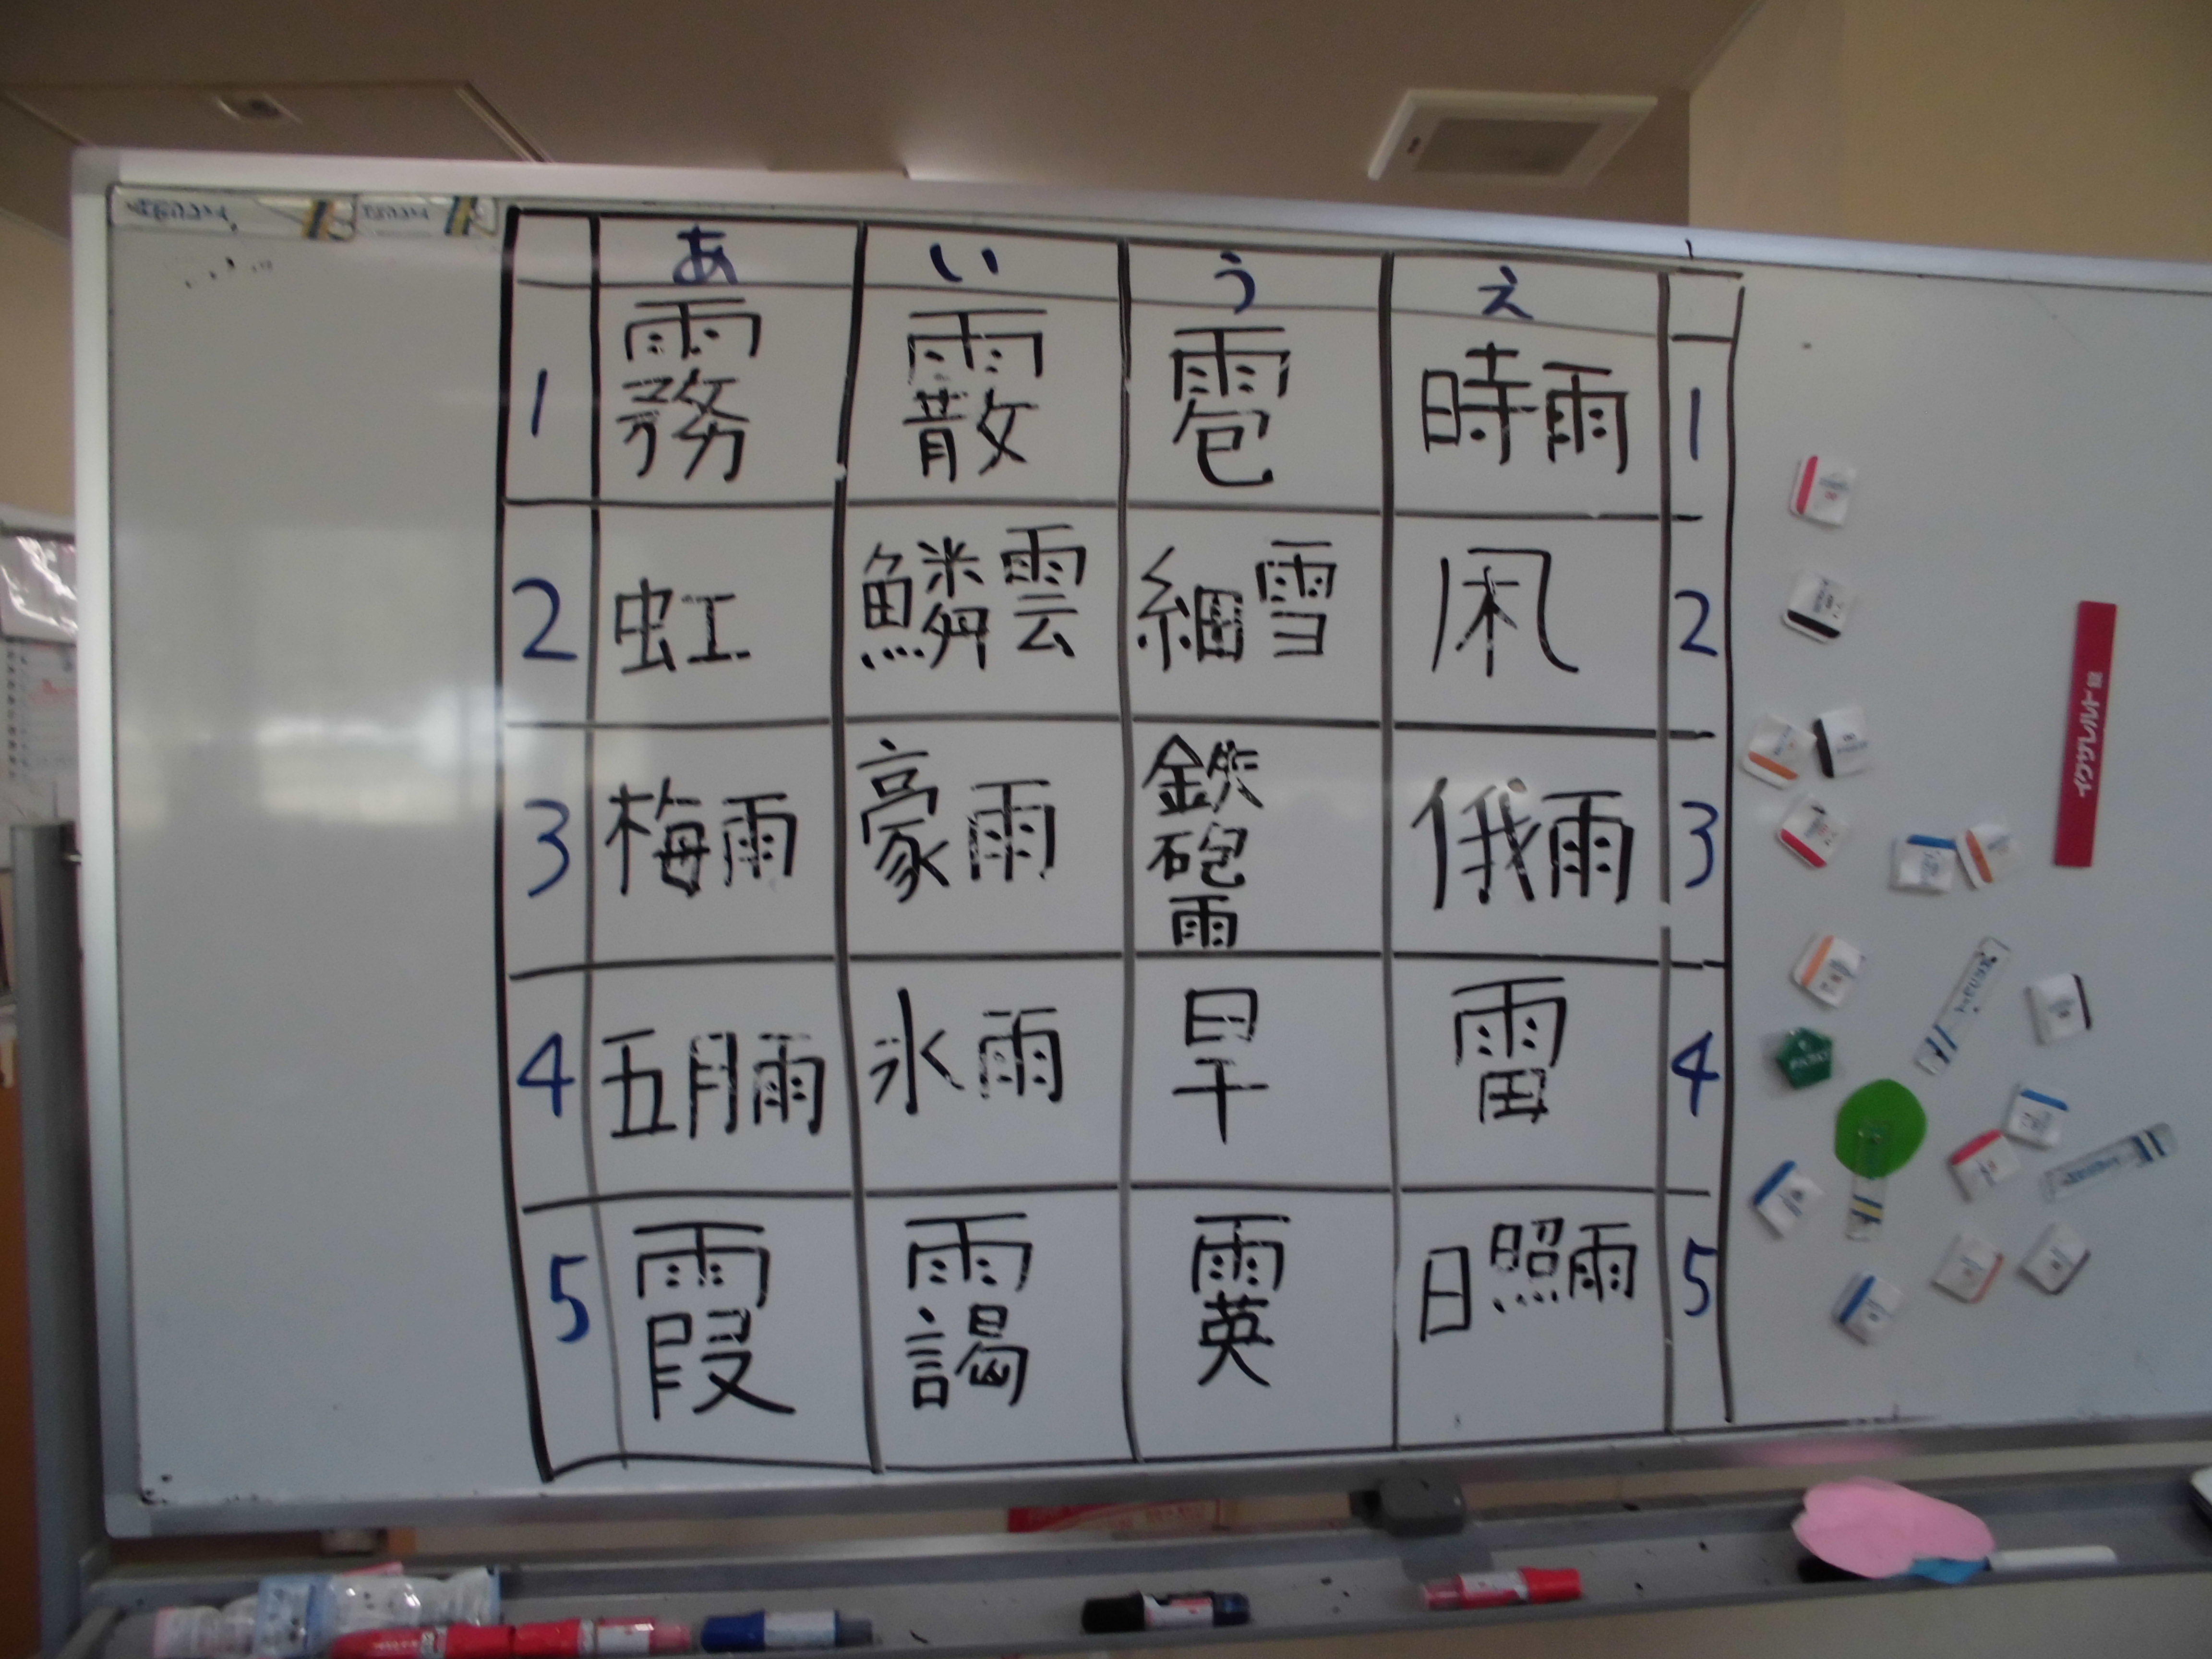 あ い う え
1 霧 霰 雹 時雨 1
2 虹 鱗雲 細雪 凩 2
3 梅雨 豪雨 鉄砲雨 俄雨 3
4 五月雨 氷雨 旱 雷 4
5 霞 靄 霙 日照雨 5